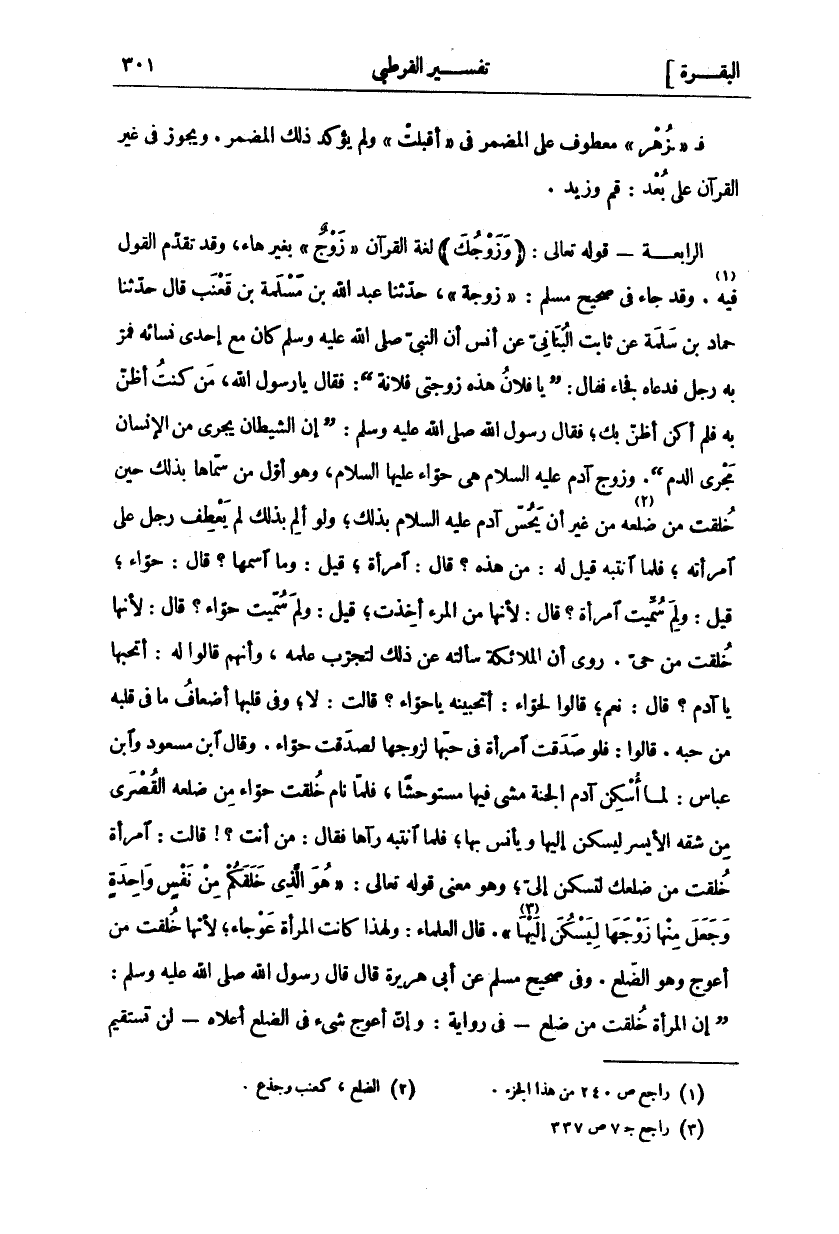 البقرة ] تفسير القرطبي ٣٠١
فـ « زُهْر » معطوف على المضمر فى « أقبلتْ » ولم يؤكد ذلك المضمر . ويجوز فى غير
القرآن على بُعْد : قم وزيد .
الرابعة — قوله تعالى : ﴿ وَزَوْجُكَ ﴾ لغة القرآن « زَوْجٌ » بغير هاء، وقد تقدّم القول
فيه (١) . وقد جاء فى صحيح مسلم : « زوجة »، حدّثنا عبد الله بن مَسْلَمة بن قَعْنَب قال حدّثنا
حماد بن سَلَمة عن ثابت البُنَانىّ عن أنس أن النبىّ صلى الله عليه وسلم كان مع إحدى نسائه فمرّ
به رجل فدعاه بفاء فقال : ” يا فلانُ هذه زوجتى فلانة “ : فقال يارسول الله، مَن كنتُ أظنّ
به فلم أكن أظنّ بك؛ فقال رسول الله صلى الله عليه وسلم : ” إن الشيطان يجرى من الإنسان
مَجْرى الدم “ . وزوج آدم عليه السلام هى حوّاء عليها السلام، وهو أوّل من سمّاها بذلك حين
خُلقت من ضلعه (٢) من غير أن يَحُسّ آدم عليه السلام بذلك؛ ولو ألِم بذلك لم يَعْطِف رجل على
آمرأته ؛ فلما آنتبه قيل له : من هذه ؟ قال : آمرأة ؛ قيل : وما آسمها ؟ قال : حوّاء ؛
قيل : ولِمَ سُمِّيت آمرأة ؟ قال : لأنها من المرء أخِذت؛ قيل : ولِمَ سُمِّيت حوّاء ؟ قال : لأنها
خُلقت من حىّ . روى أن الملائكة سألته عن ذلك لتجرّب علمه ، وأنهم قالوا له : أتحبها
يا آدم ؟ قال : نعم؛ قالوا لحوّاء : أتحبينه ياحوّاء ؟ قالت : لا؛ وفى قلبها أضعافُ ما فى قلبه
من حبه . قالوا : فلو صَدَقت آمرأة فى حبّها لزوجها لصدَقت حوّاء . وقال آبن مسعود وآبن
عباس : لمـا أُسْكِن آدم الجنة مشى فيها مستوحشًا ، فلمّا نام خُلقت حوّاء مِن ضلعه القُصْرَى
مِن شقه الأيسر ليسكن إليها ويأنس بها؛ فلما آنتبه رآها فقال : من أنت ؟! قالت : آمرأة
خُلقت من ضلعك لتسكن إلىّ؛ وهو معنى قوله تعالى : « هُوَ الَّذِى خَلَقَكُمْ مِنْ نَفْسٍ وَاحِدَةٍ
وَجَعَلَ مِنْهَا زَوْجَهَا لِيَسْكُنَ إِلَيْهَا (٣) » . قال العلماء : ولهذا كانت المرأة عَوْجاء؛ لأنها خُلقت من
أعوج وهو الضّلع . وفى صحيح مسلم عن أبى هريرة قال قال رسول الله صلى الله عليه وسلم :
” إن المرأة خُلقت من ضلع — فى رواية : وإنّ أعوج شىء فى الضلع أعلاه — لن تستقيم
(١) راجع ص ٢٤٠ من هذا الجزء . (٢) الضلع ، كعنب وجذع .
(٣) راجع جـ ٧ ص ٣٣٧